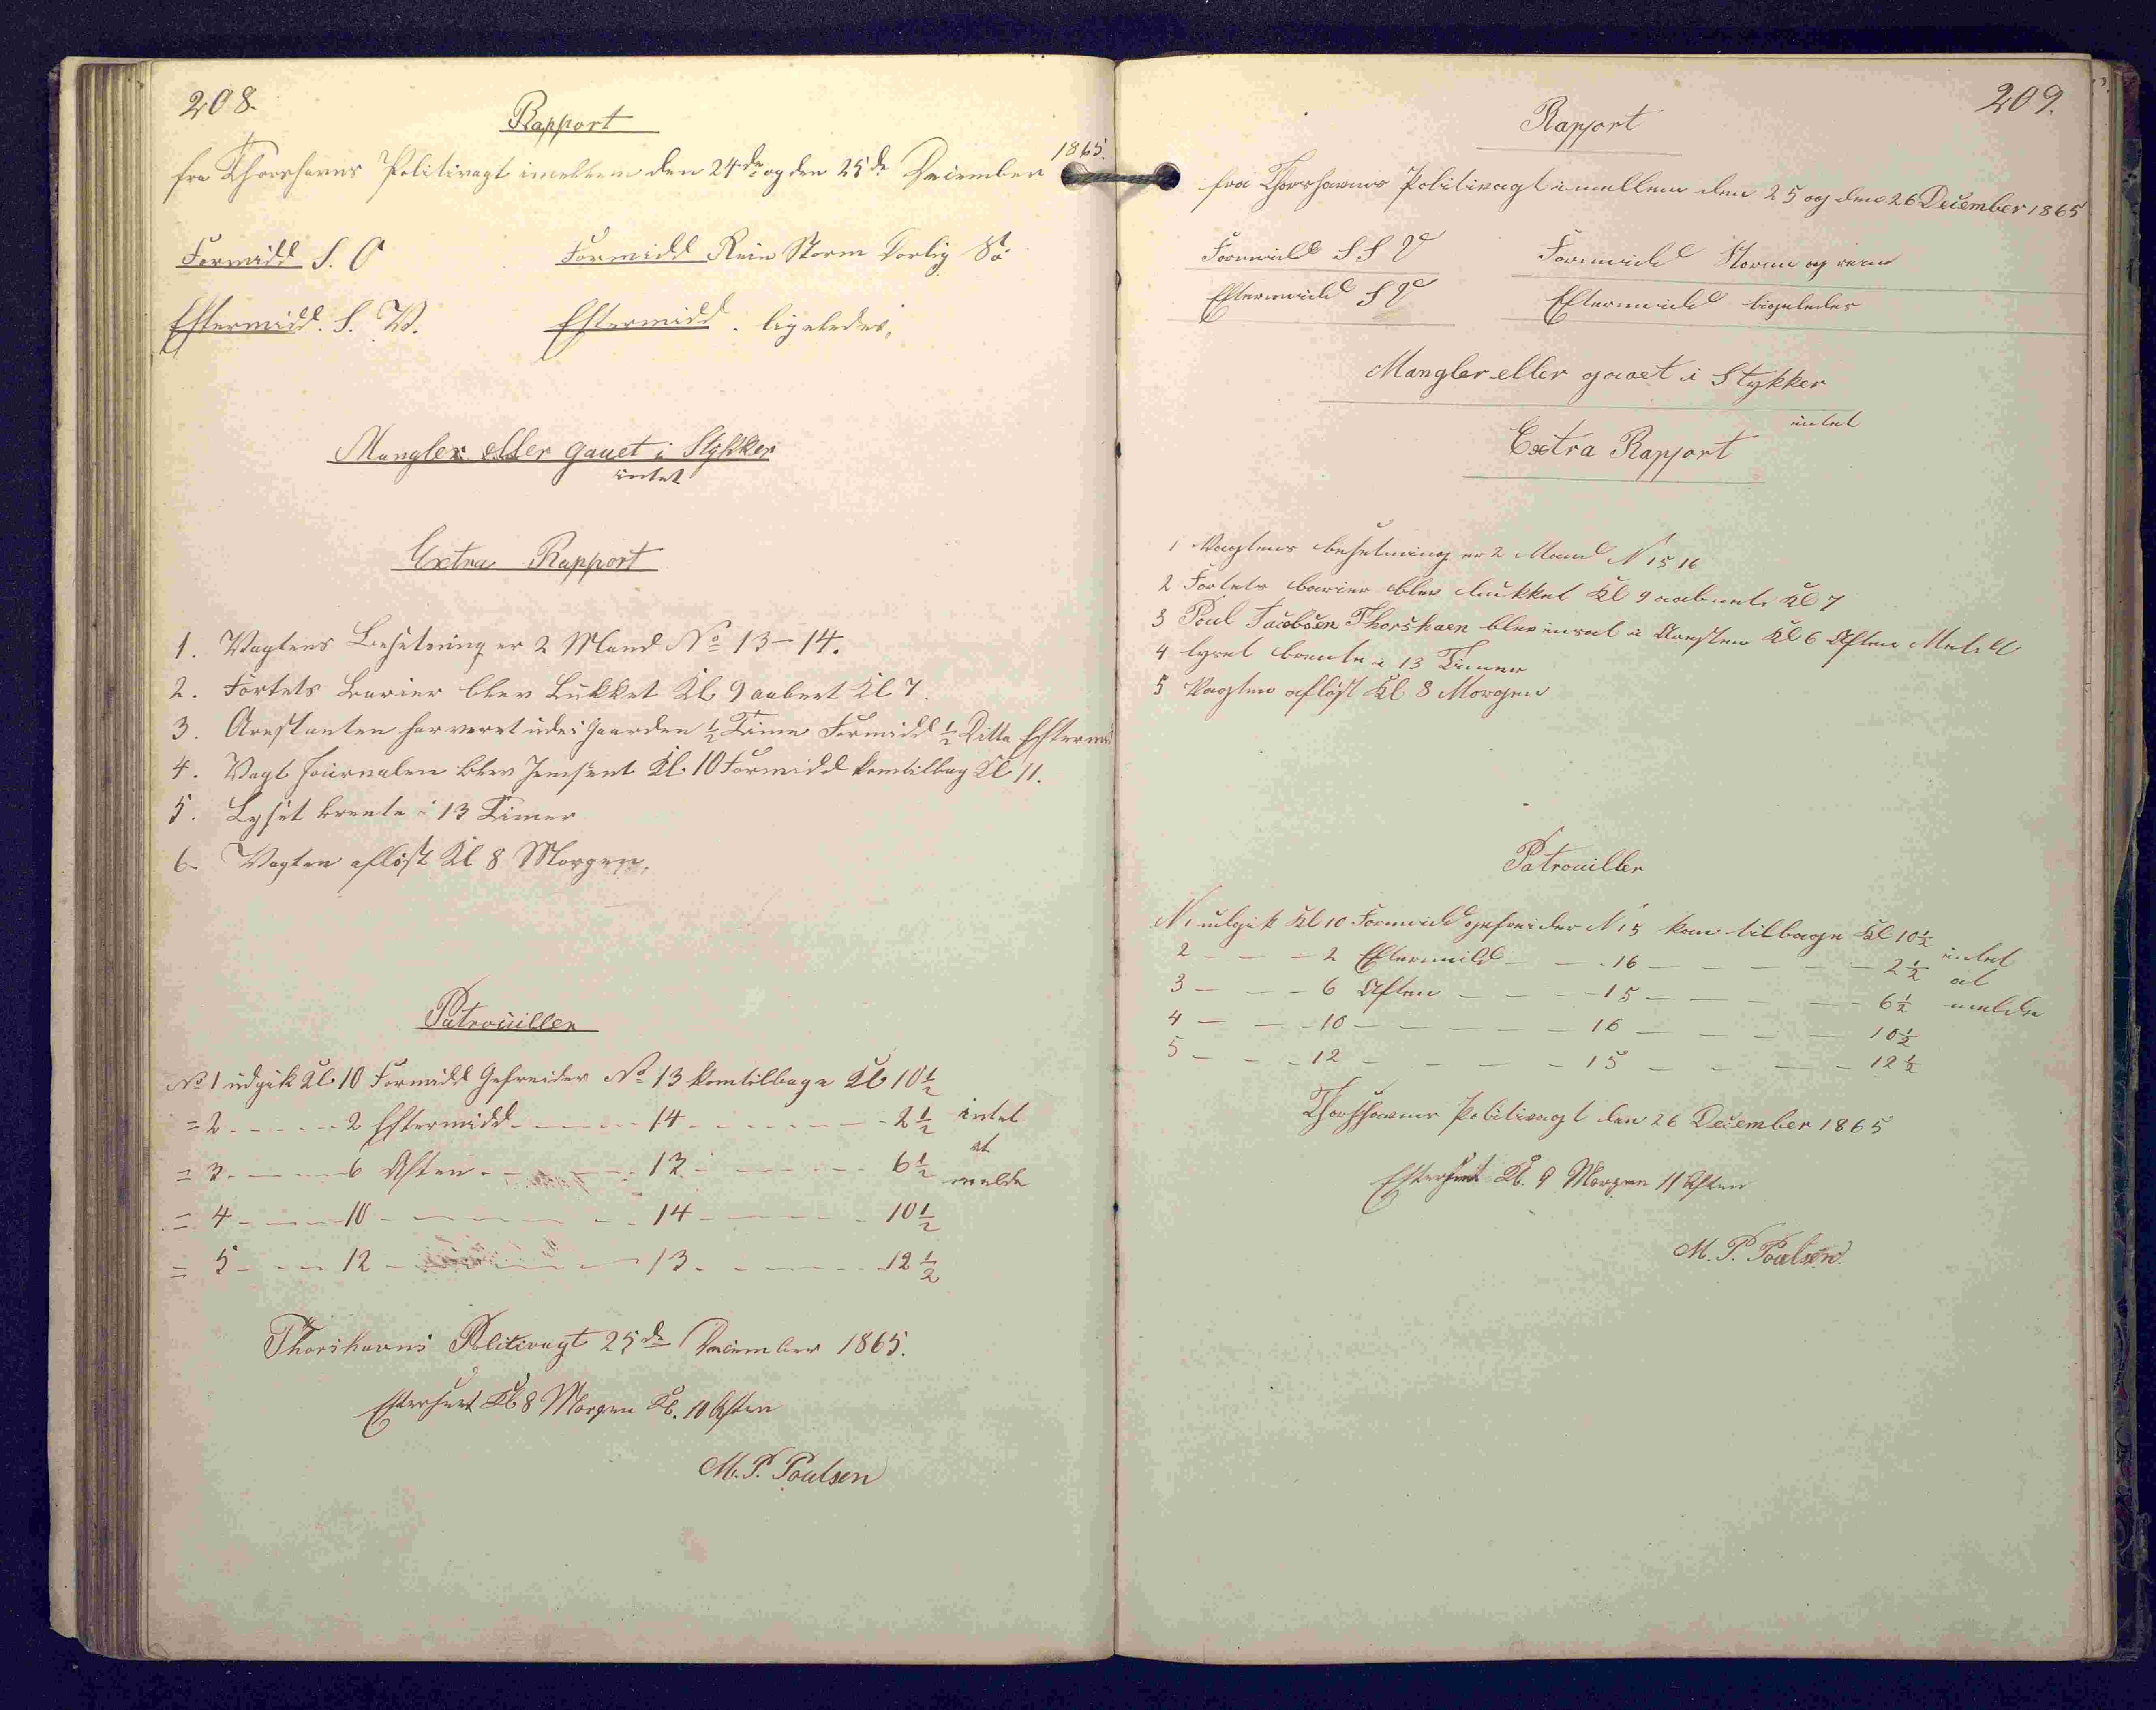 208.
Rapport
fra Thorshavns Politivagt imellem den 24de og den 25de December 1865.
Formidd S. O Formidd Rein Storm Daarlig Sö
Eftermidd. S. V. Eftermidd. ligeledes.
Mangler eller gaaet i Stykker
intet
Extra Rapport
1. Vagtens Besetning er 2 Mand No 13-14.
2. Fortets Barier blev Lukket Kl 9 aabent Kl 7.
3. Arestanten har veret ude i Gaarden ½ Time Formidd ½ Ditto Eftermid
4. Vagt Journalen blev Jemsent Kl. 10 Formidd kom tilbag Kl 11.
5. Lyset brente i 13 Timer
6. Vagten aflöst Kl 8 Morgen.
Patrouiller
No 1 udgik Kl. 10 Formidd Gefreider No 13 kom tilbage Kl 10½
= 2 - - - - - 2 Eftermidd - - - - - 14 - - - - - - 2½ intet
= 3 - - - - 6 Aften - - - - - 13 - - - - - 6½ at melde
= 4 - - - - 10 - - - - - - 14 - - - - - 10½
= 5 - - - 12 - - - - - 13 - - - - - 12½
Thorshavns Politivagt 25de December 1865.
Efterseet Kl 8 Morgen Kl. 10 Aften
M. P. Poulsen
209.
Rapport
fra Thorshavns Politivagt imellem den 25 og den 26 December 1865
Formidd S S V Formidd Storm og rein
Eftermidd S V Eftermidd ligeledes
Mangler eller gaaet i Stykker
intet
Extra Rapport
1 Vagtens besetning er 2 Mand N 15 16
2 Fortets barier blev lukket Kl 9 aabnet Kl 7
3 Poul Jacobsen Thorshavn blev insat i Aresten Kl 6 Aften
4 lyset brente i 13 Timer
5 Vagten aflöst Kl 8 Morgen
Patrouiller
N 1 udgik Kl 10 Formidd gefreider N 15 kom tilbage Kl 10½ intet
2 - - - - 2 Eftermidd - - - 16 - - - - - - 2½ at
3 - - - - 6 Aften - - - - 15 - - - - - - 6½ melde
4 - - - - 10 - - - - - - 16 - - - - - 10½
5 - - - - 12 - - - - - 15 - - - - - 12½
Thorshavns Politivagt den 26 December 1865
Efterseet Kl. 9 Morgen 11 Aften
M. P. Poulsen.